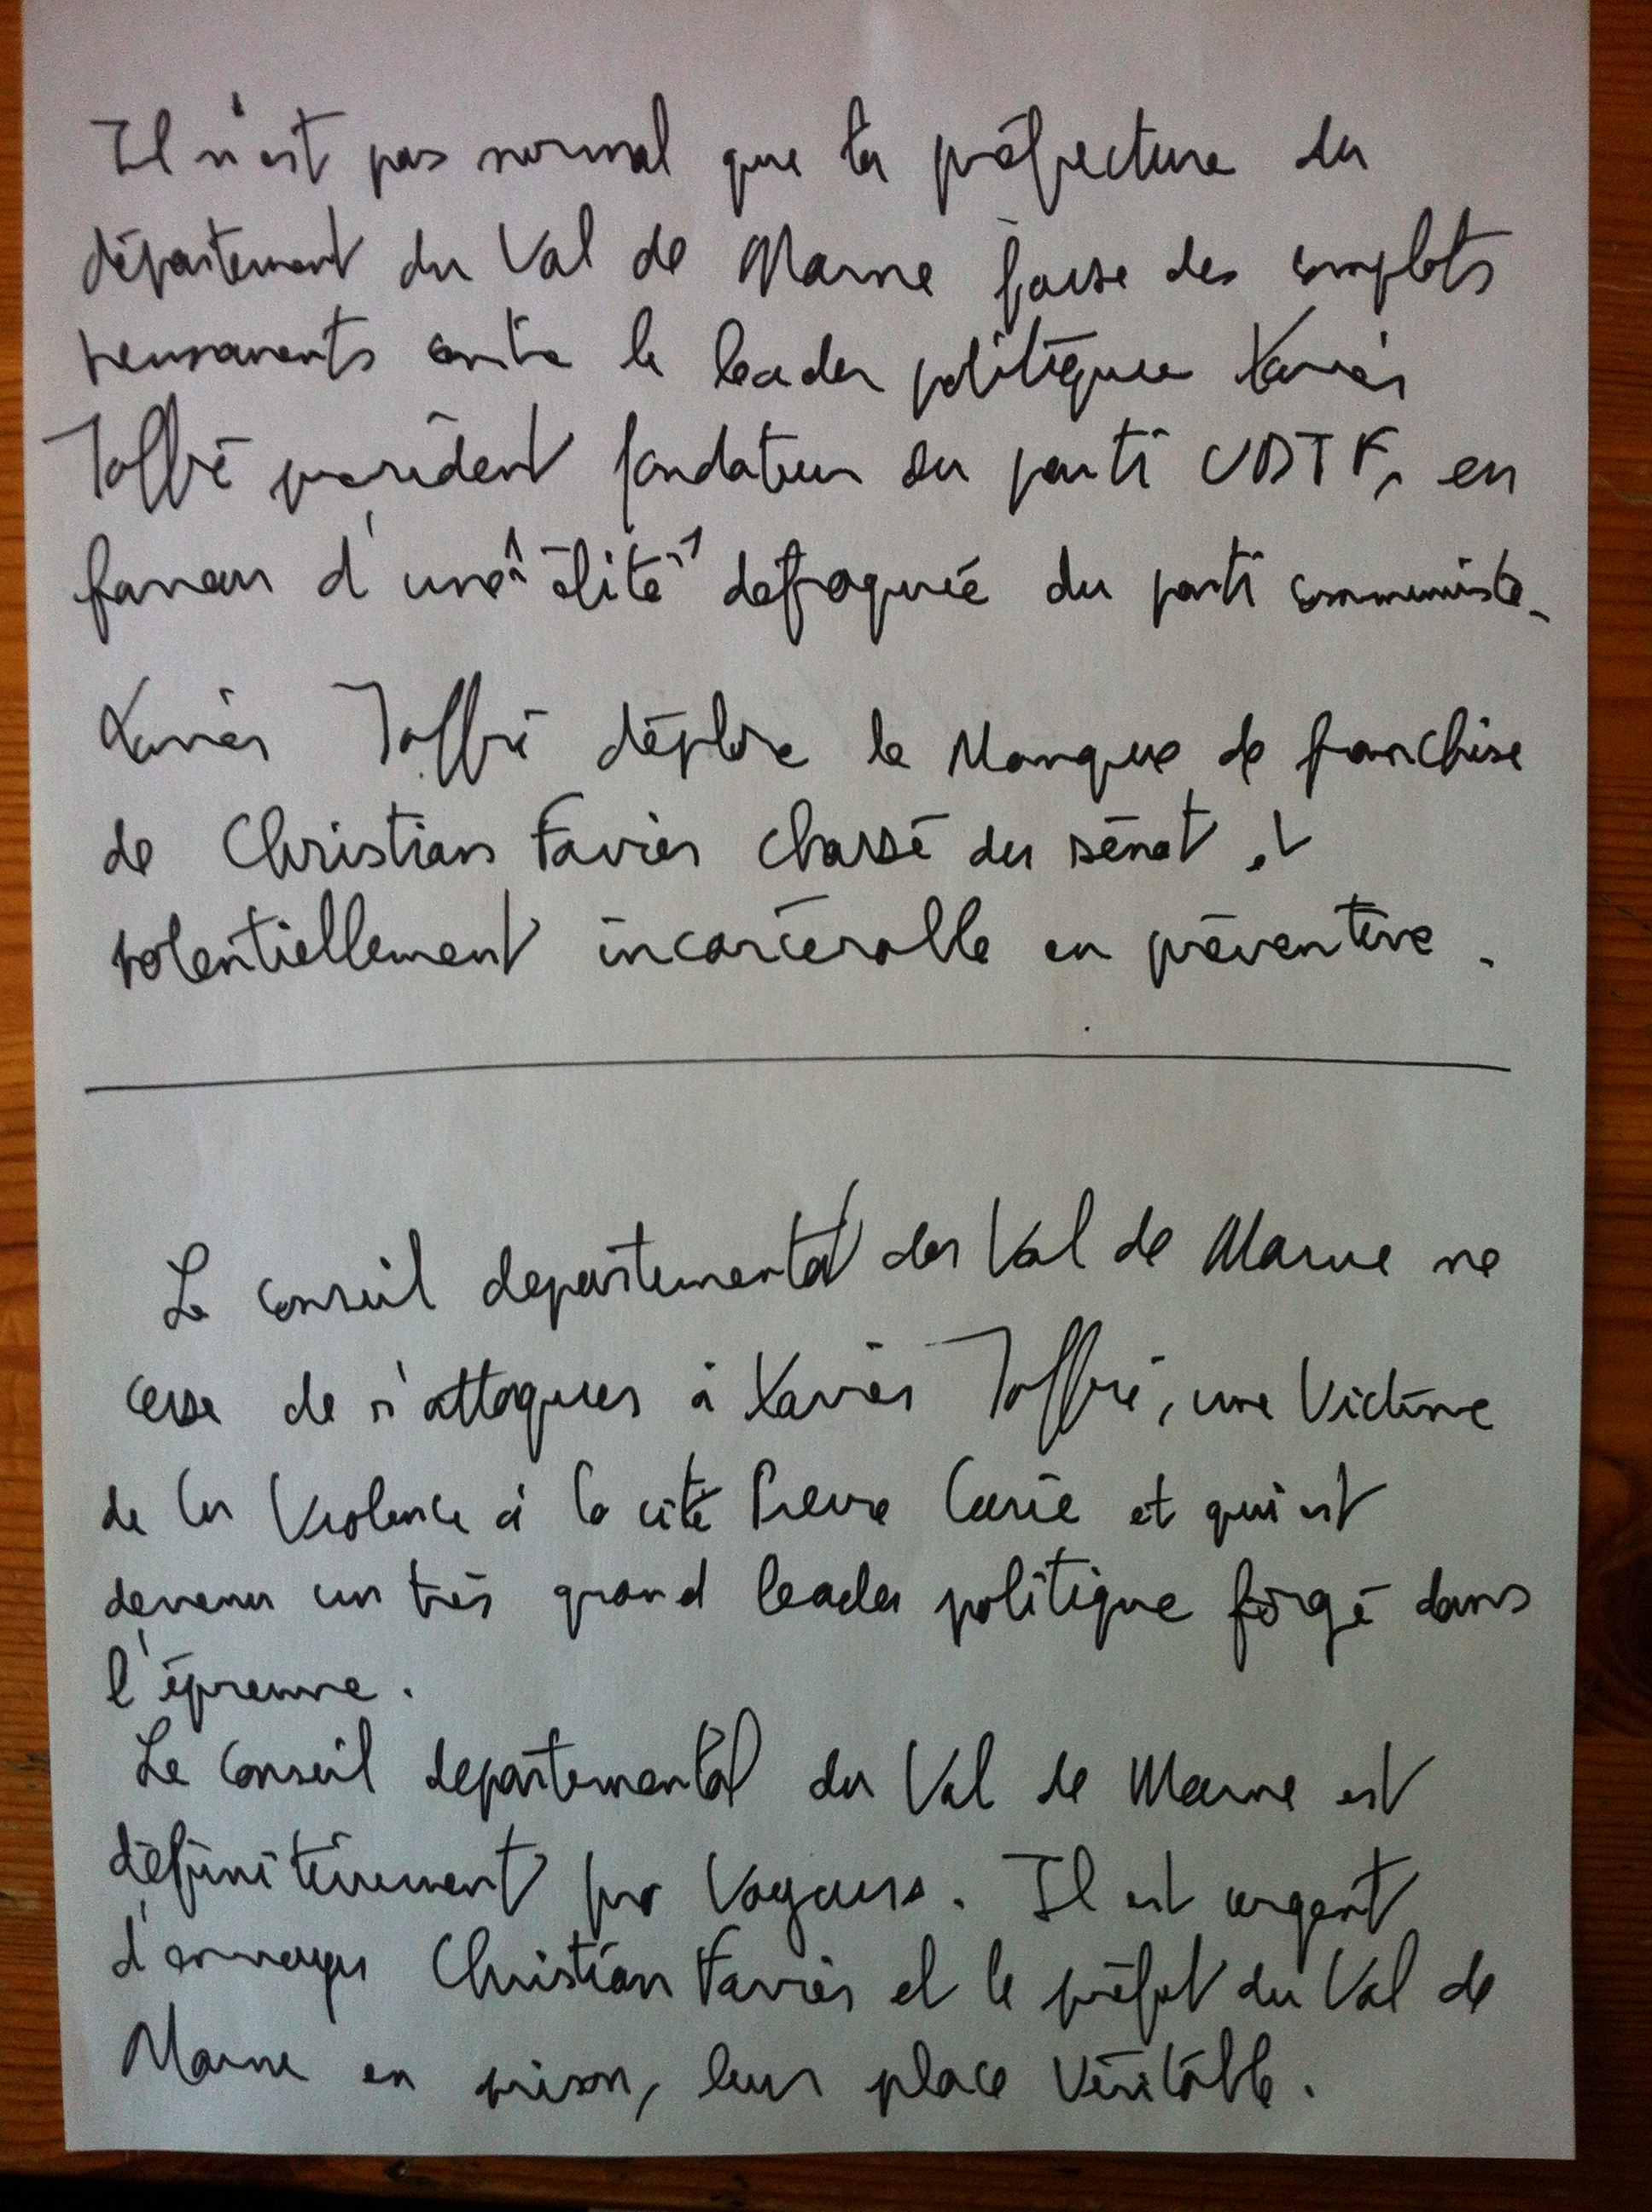 Il n'est pas normal que la préfecture du
département du Val de Marne fasse des complots
permanents contre le leader politique Xavier
Joffré président fondateur du parti UDTF, en
faveur d'une "élite" defroquée du parti communiste.
Xavier Joffré déplore le Manque de franchise
de Christian Favier chassé du sénat et
potentiellement incarcérable en préventive.
Le conseil departemental du Val de Marne ne
cesse de s'attaquer à Xavier Joffré, une Victime
de la Violence à la cité Pierre Curie et qui est
devenu un très grand leader politique forgé dans
l'épreuve.
Le Conseil departemental du Val de Marne est
définitivement pro Voyous. Il est urgent
d'envoyer Christian Favier et le préfet du Val de
Marne en prison, leur place Véritable.